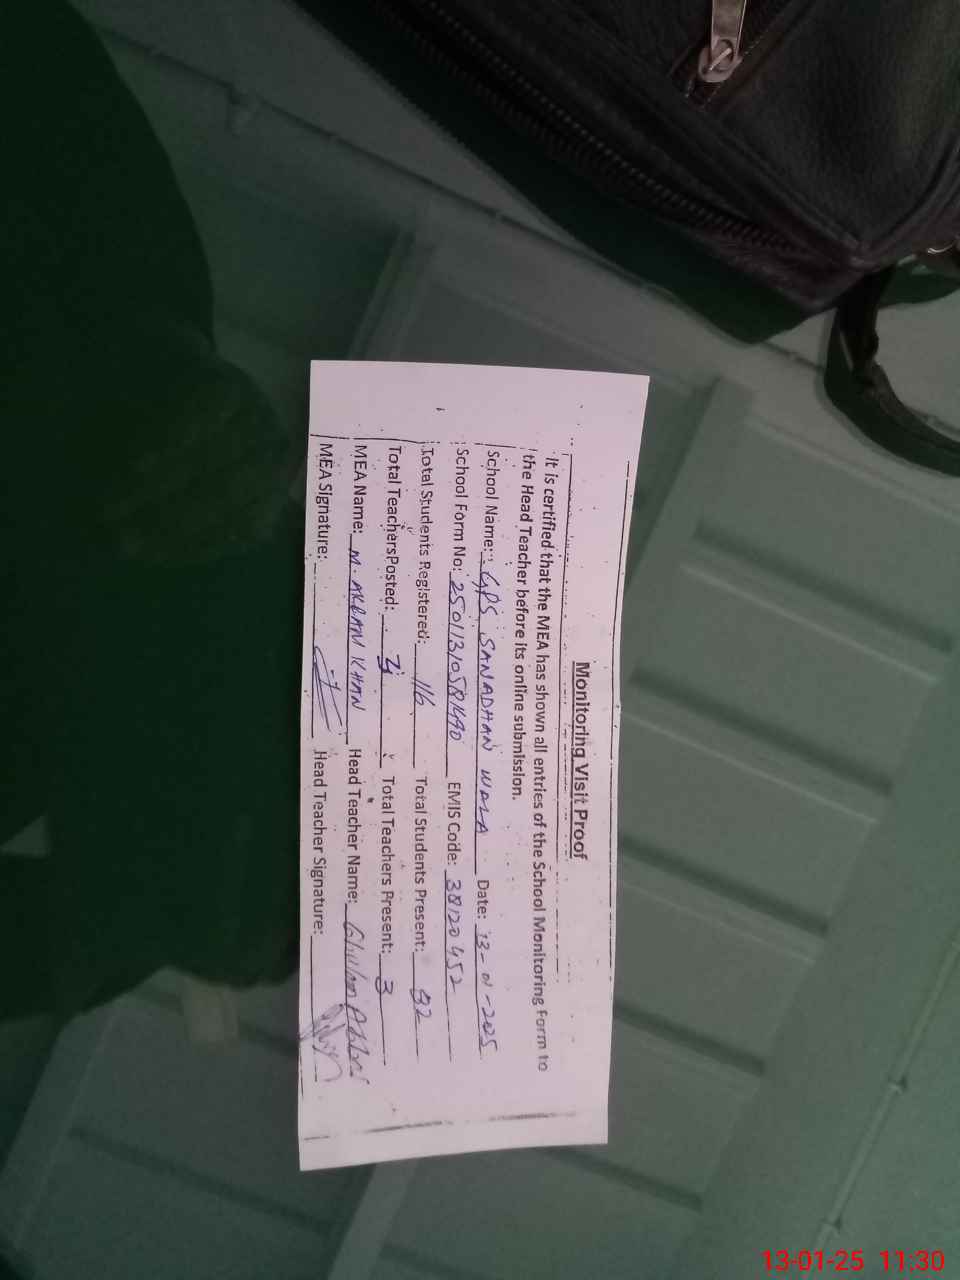 Monitoring Visit Proof
It is certified that the MEA has shown all entries of the School Monitoring Form to
the Head Teacher before its online submission.
School Name: GPS SANADHAN WALA Date: 13-01-205
School Form No: EMIS Code: 38120452
Total Students Registered: 116 Total Students Present: 92
Total TeachersPosted: Total Teachers Present: 3
MEA Name: M. AKRAM KHAN Head Teacher Name: Ghulam
MEA Signature: Head Teacher Signature:
13-01-25 11:30